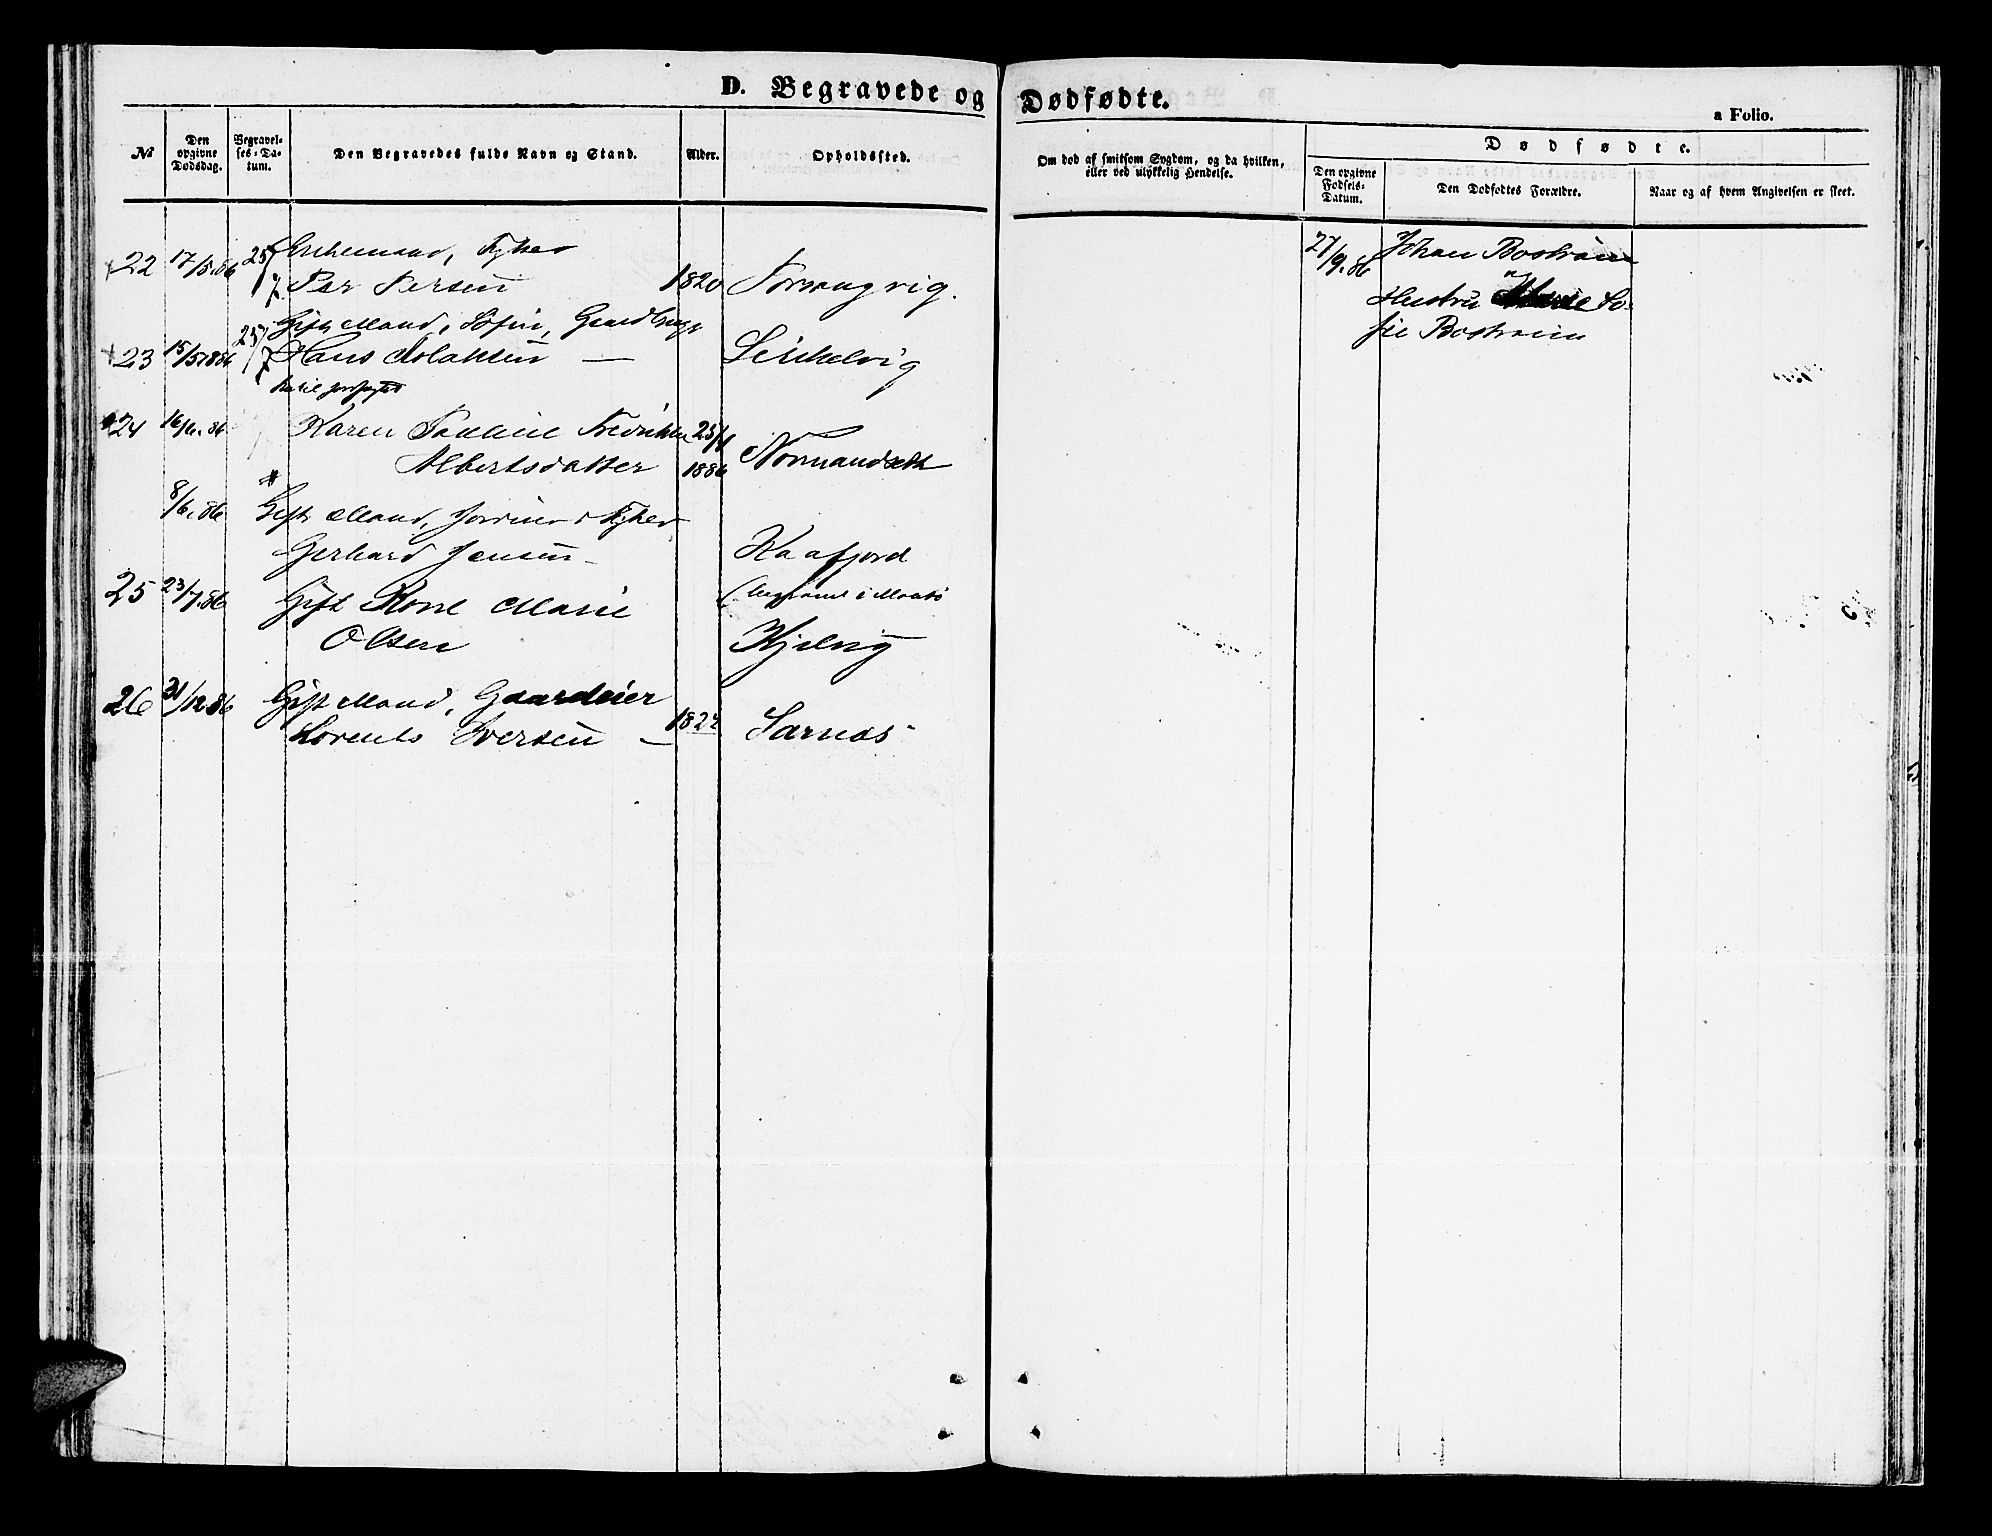 D. Begravede og Dødfødte.
a Folio.
№
Den opgivne Dødsdag.
Begravelses-Datum.
Den Begravedes fulde Navn og Stand.
Alder.
Opholdssted.
Om død af smitsom Sygdom, og da hvilken,
eller ved ulykkelig Hendelse.
Dødfødte.
Den opgivne Fødsels-Datum.
Den Dødfødtes Forældre.
Naar og af hvem Angivelsen er skeet.
22 17/5.86 25/7 Enkemand, Fisker
Per Persen 1820
23 15/5 1886 25/7 Gift Mand,
Hans Aslaksen —
24 16/6.86 Karen Pauline Fredrikke 25/1
Albertsdatter 1886 Normandsæt
8/6.86 Gift Mand, Fisker
Gerhard Jensen — Kaafjord
25 23/7.86 Gift Kone Marie
Olsen Kjelvig
26 31/12 86 Gift Mand, Gaardeier
Lorents Iversen — 1822 Sarnæs
27/9.86 Johan Bostrøm
og
Hustru So-
fie Bostrøm